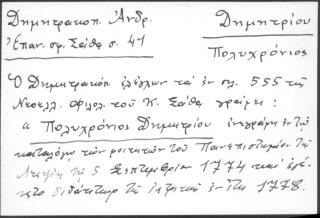 Δημητρακοπ. Ἀνδρ.
Δημητρίου
Ἐπαν. σφ. Σάθα σ. 41
Πολυχρόνιος
Ὁ Δημητρακόπ. ἐλέγχων τὰ ἐν σελ. 555 τῆς
Νεοελλ. Φιλολ. τοῦ Κ. Σάθα γράφει :
" Πολυχρόνιος Δημητρίου ἐνεγράφη ἐν τῷ
καταλόγῳ τῶν φοιτητῶν τοῦ Πανεπιστημίου τῆς
τῇ 5 Σεπτεμβρίου 1774 καὶ
διδάκτωρ τῆς ἰατρικῆς ἐν ἔτει 1778.